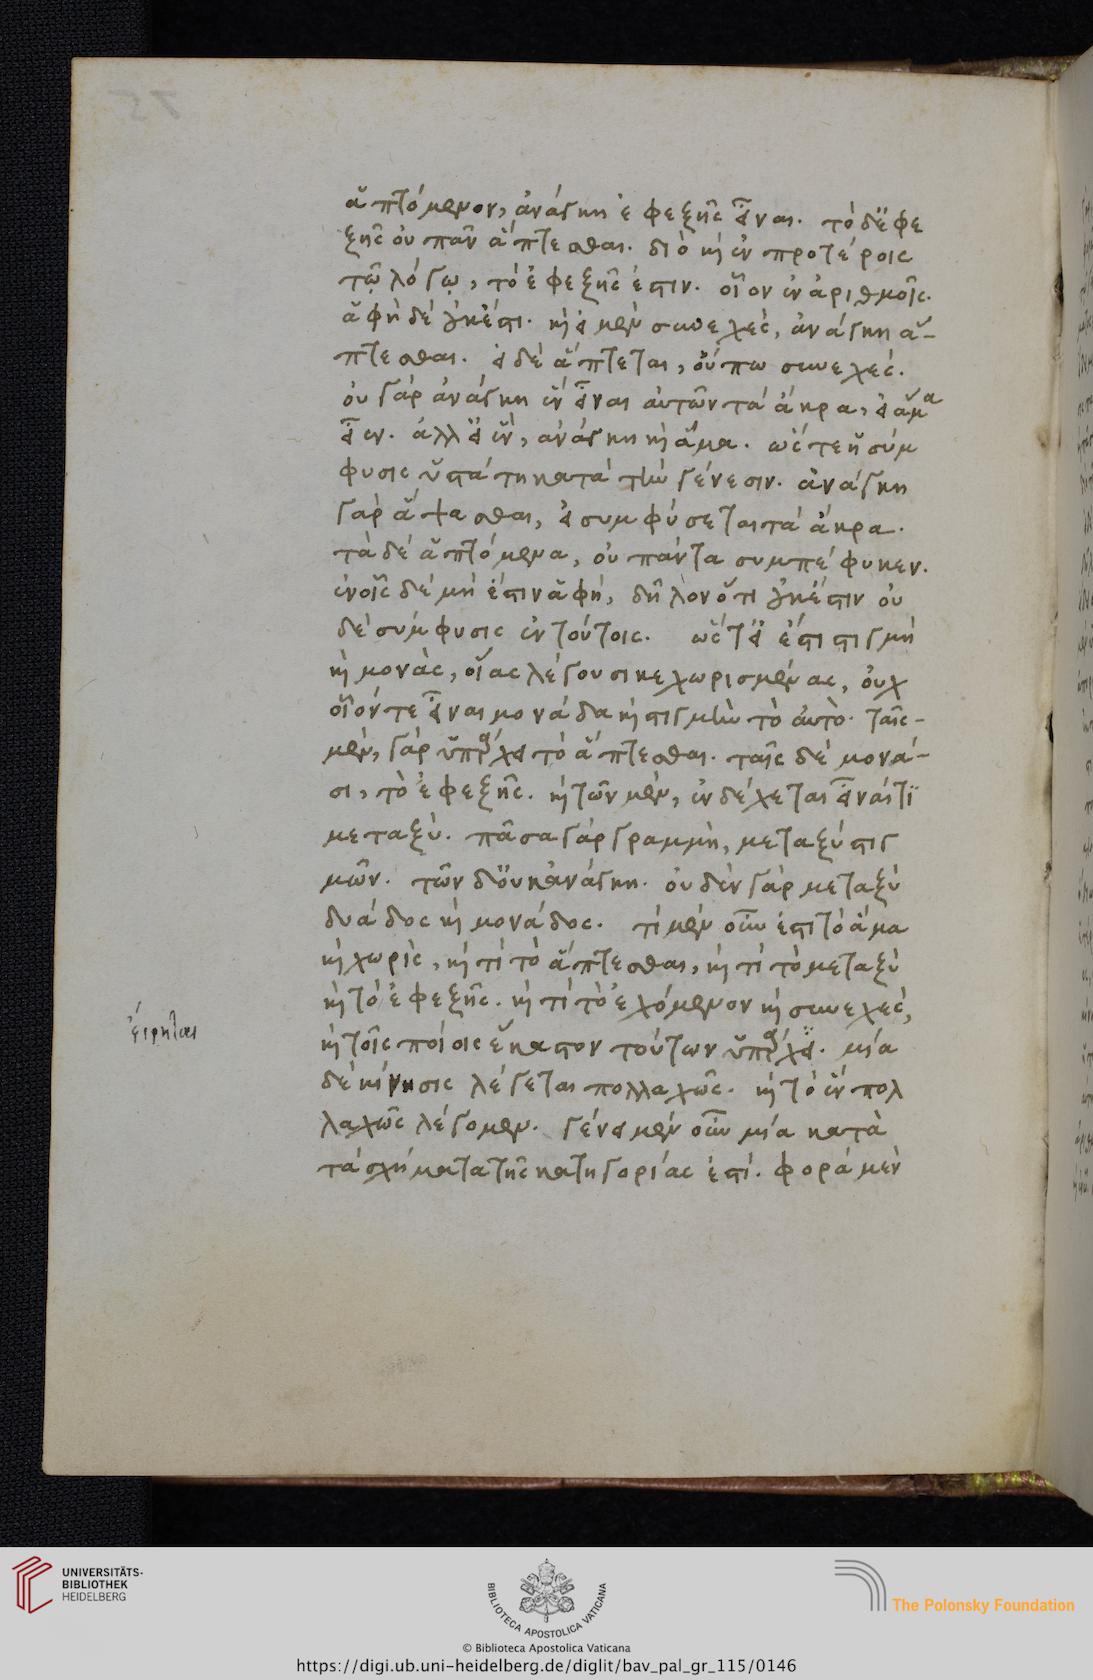 ἁπτόμενον, ἀνάγκη ἐφεξῆς εἶναι. τὸ δ' ἐφε
ξῆς οὐ πᾶν ἅπτεσθαι. διὸ καὶ ἐν προτέροις
τῷ λόγῳ, τὸ ἐφεξῆς ἐστιν. οἷον ἐν ἀριθμοῖς.
ἁφὴ δὲ οὐκ ἔστι. καὶ εἰ μὲν συνεχὲς, ἀνάγκη ἅ-
πτεσθαι. εἰ δὲ ἅπτεται, οὔπω συνεχές.
οὐ γὰρ ἀνάγκη ἓν εἶναι αὐτῶν τὰ ἄκρα, εἰ ἅμα
εἶεν. ἀλλ' εἰ ἓν, ἀνάγκη καὶ ἅμα. ὥστε ἡ σύμ
φυσις ὑστάτη κατὰ τὴν γένεσιν. ἀνάγκη
γὰρ ἅψασθαι, εἰ συμφύσεται τὰ ἄκρα.
τὰ δὲ ἁπτόμενα, οὐ πάντα συμπέφυκεν.
ἐν οἷς δὲ μή ἐστιν ἁφή, δῆλον ὅτι οὐκ ἔστιν οὐ
δὲ σύμφυσις ἐν τούτοις. ὥστ' εἰ ἔστι στιγμὴ
καὶ μονὰς, οἵας λέγουσι κεχωρισμένας, οὐχ
οἷόν τε εἶναι μονάδα καὶ στιγμὴν τὸ αὐτὸ. ταῖς-
μὲν, γὰρ ὑπάρχει τὸ ἅπτεσθαι. ταῖς δὲ μονά-
σι, τὸ ἐφεξῆς. καὶ τῶν μὲν, ἐνδέχεται εἶναί τι
μεταξὺ. πᾶσα γὰρ γραμμὴ, μεταξὺ στιγ
μῶν. τῶν δ' οὐκ ἀνάγκη. οὐδὲν γὰρ μεταξὺ
δυάδος καὶ μονάδος. τί μὲν οὖν ἐστι τὸ ἅμα
καὶ χωρὶς, καὶ τί τὸ ἅπτεσθαι, καὶ τί τὸ μεταξὺ
καὶ τὸ ἐφεξῆς. καὶ τί τὸ ἐχόμενον καὶ συνεχές,
εἴρηται
καὶ τοῖς ποίοις ἕκαστον τούτων ὑπάρχει. μία
δὲ κίνησις λέγεται πολλαχῶς. καὶ τὸ ἓν πολ
λαχῶς λέγομεν. γένει μὲν οὖν μία κατὰ
τὰ σχήματα τῆς κατηγορίας ἐστί. φορὰ μὲν
UNIVERSITÄTS-
BIBLIOTHEK
HEIDELBERG
BIBLIOTECA APOSTOLICA VATICANA
The Polonsky Foundation
© Biblioteca Apostolica Vaticana
https://digi.ub.uni-heidelberg.de/diglit/bav_pal_gr_115/0146